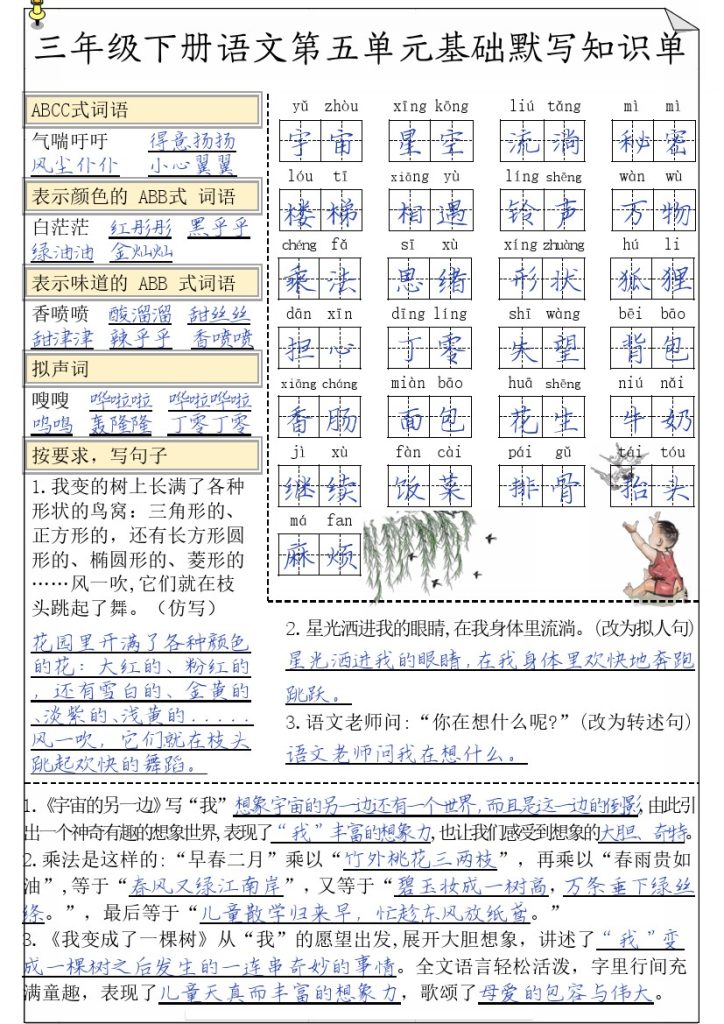 三年级下册语文第五单元基础默写知识单
ABCC式词语
气喘吁吁 得意扬扬
风尘仆仆 小心翼翼
表示颜色的 ABB式 词语
白茫茫 红彤彤 黑乎乎
绿油油 金灿灿
表示味道的 ABB 式词语
香喷喷 酸溜溜 甜丝丝
甜津津 辣乎乎 香喷喷
拟声词
嗖嗖 哗啦啦 哗啦哗啦
呜呜 轰隆隆 丁零丁零
按要求，写句子
1.我变的树上长满了各种
形状的鸟窝：三角形的、
正方形的，还有长方形圆
形的、椭圆形的、菱形的
……风一吹,它们就在枝
头跳起了舞。（仿写）
花园里开满了各种颜色
的花：大红的、粉红的
，还有雪白的、金黄的
、淡紫的、浅黄的.....
风一吹，它们就在枝头
跳起欢快的舞蹈。
yǔ zhòu xīng kōng liú tǎng mì mì
宇宙 星空 流淌 秘密
lóu tī xiāng yù líng shēng wàn wù
楼梯 相遇 铃声 万物
chéng fǎ sī xù xíng zhuàng hú li
乘法 思绪 形状 狐狸
dān xīn dīng líng shī wàng bēi bāo
担心 丁零 失望 背包
xiāng cháng miàn bāo huā shēng niú nǎi
香肠 面包 花生 牛奶
jì xù fàn cài pái gǔ tái tóu
继续 饭菜 排骨 抬头
má fan
麻烦
2.星光洒进我的眼睛,在我身体里流淌。(改为拟人句)
星光洒进我的眼睛,在我身体里欢快地奔跑
跳跃。
3.语文老师问:“你在想什么呢?”(改为转述句)
语文老师问我在想什么。
1.《宇宙的另一边》写“我”想象宇宙的另一边还有一个世界,而且是这一边的倒影,由此引
出一个神奇有趣的想象世界,表现了“我”丰富的想象力,也让我们感受到想象的大胆、奇特。
2.乘法是这样的:“早春二月”乘以“竹外桃花三两枝”，再乘以“春雨贵如
油”,等于“春风又绿江南岸”，又等于“碧玉妆成一树高，万条垂下绿丝
绦。”，最后等于“儿童散学归来早，忙趁东风放纸鸢。”
3.《我变成了一棵树》从“我”的愿望出发,展开大胆想象，讲述了“我”变
成一棵树之后发生的一连串奇妙的事情。全文语言轻松活泼，字里行间充
满童趣，表现了儿童天真而丰富的想象力，歌颂了母爱的包容与伟大。